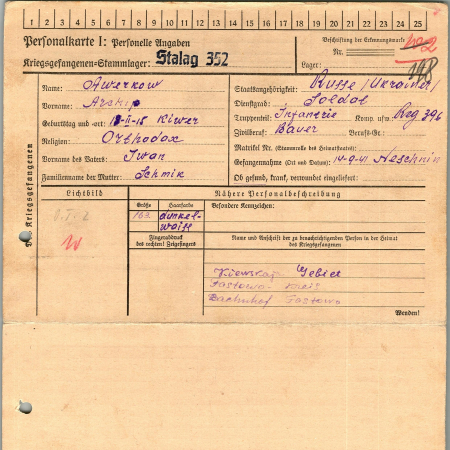 1 2 3 4 5 6 7 8 9 10 11 12 13 14 15 16 17 18 19 20 21 22 23 24 25
Personalkarte I: Personelle Angaben
Kriegsgefangenen-Stammlager: Stalag 352
Beschriftung der Erkennungsmarke
Nr.
Lager: 148
Des Kriegsgefangenen
Name: Awerkow
Vorname: Archip
Geburtstag und -ort: Kiwer
Religion: Orthodox
Vorname des Vaters: Iwan
Familienname der Mutter: Schmik
Staatsangehörigkeit: Russe / Ukrainer /
Dienstgrad: Soldat
Truppenteil: Infanterie Komp. usw. Reg 396
Zivilberuf: Bauer Berufs-Gr.:
Matrikel Nr. (Stammrolle des Heimatstaates):
Gefangennahme (Ort und Datum): 14-9-41 Neschnin
Ob gesund, krank, verwundet eingeliefert:
Lichtbild
Nähere Personalbeschreibung
Größe Haarfarbe Besondere Kennzeichen:
163 dunkel-
Fingerabdruck
des rechten! Zeigefingers
Name und Anschrift der zu benachrichtigenden Person in der Heimat
des Kriegsgefangenen
Kiewskaja Gebiet
Fastowo Kreis
Bachnhof Fastowo
Wenden!